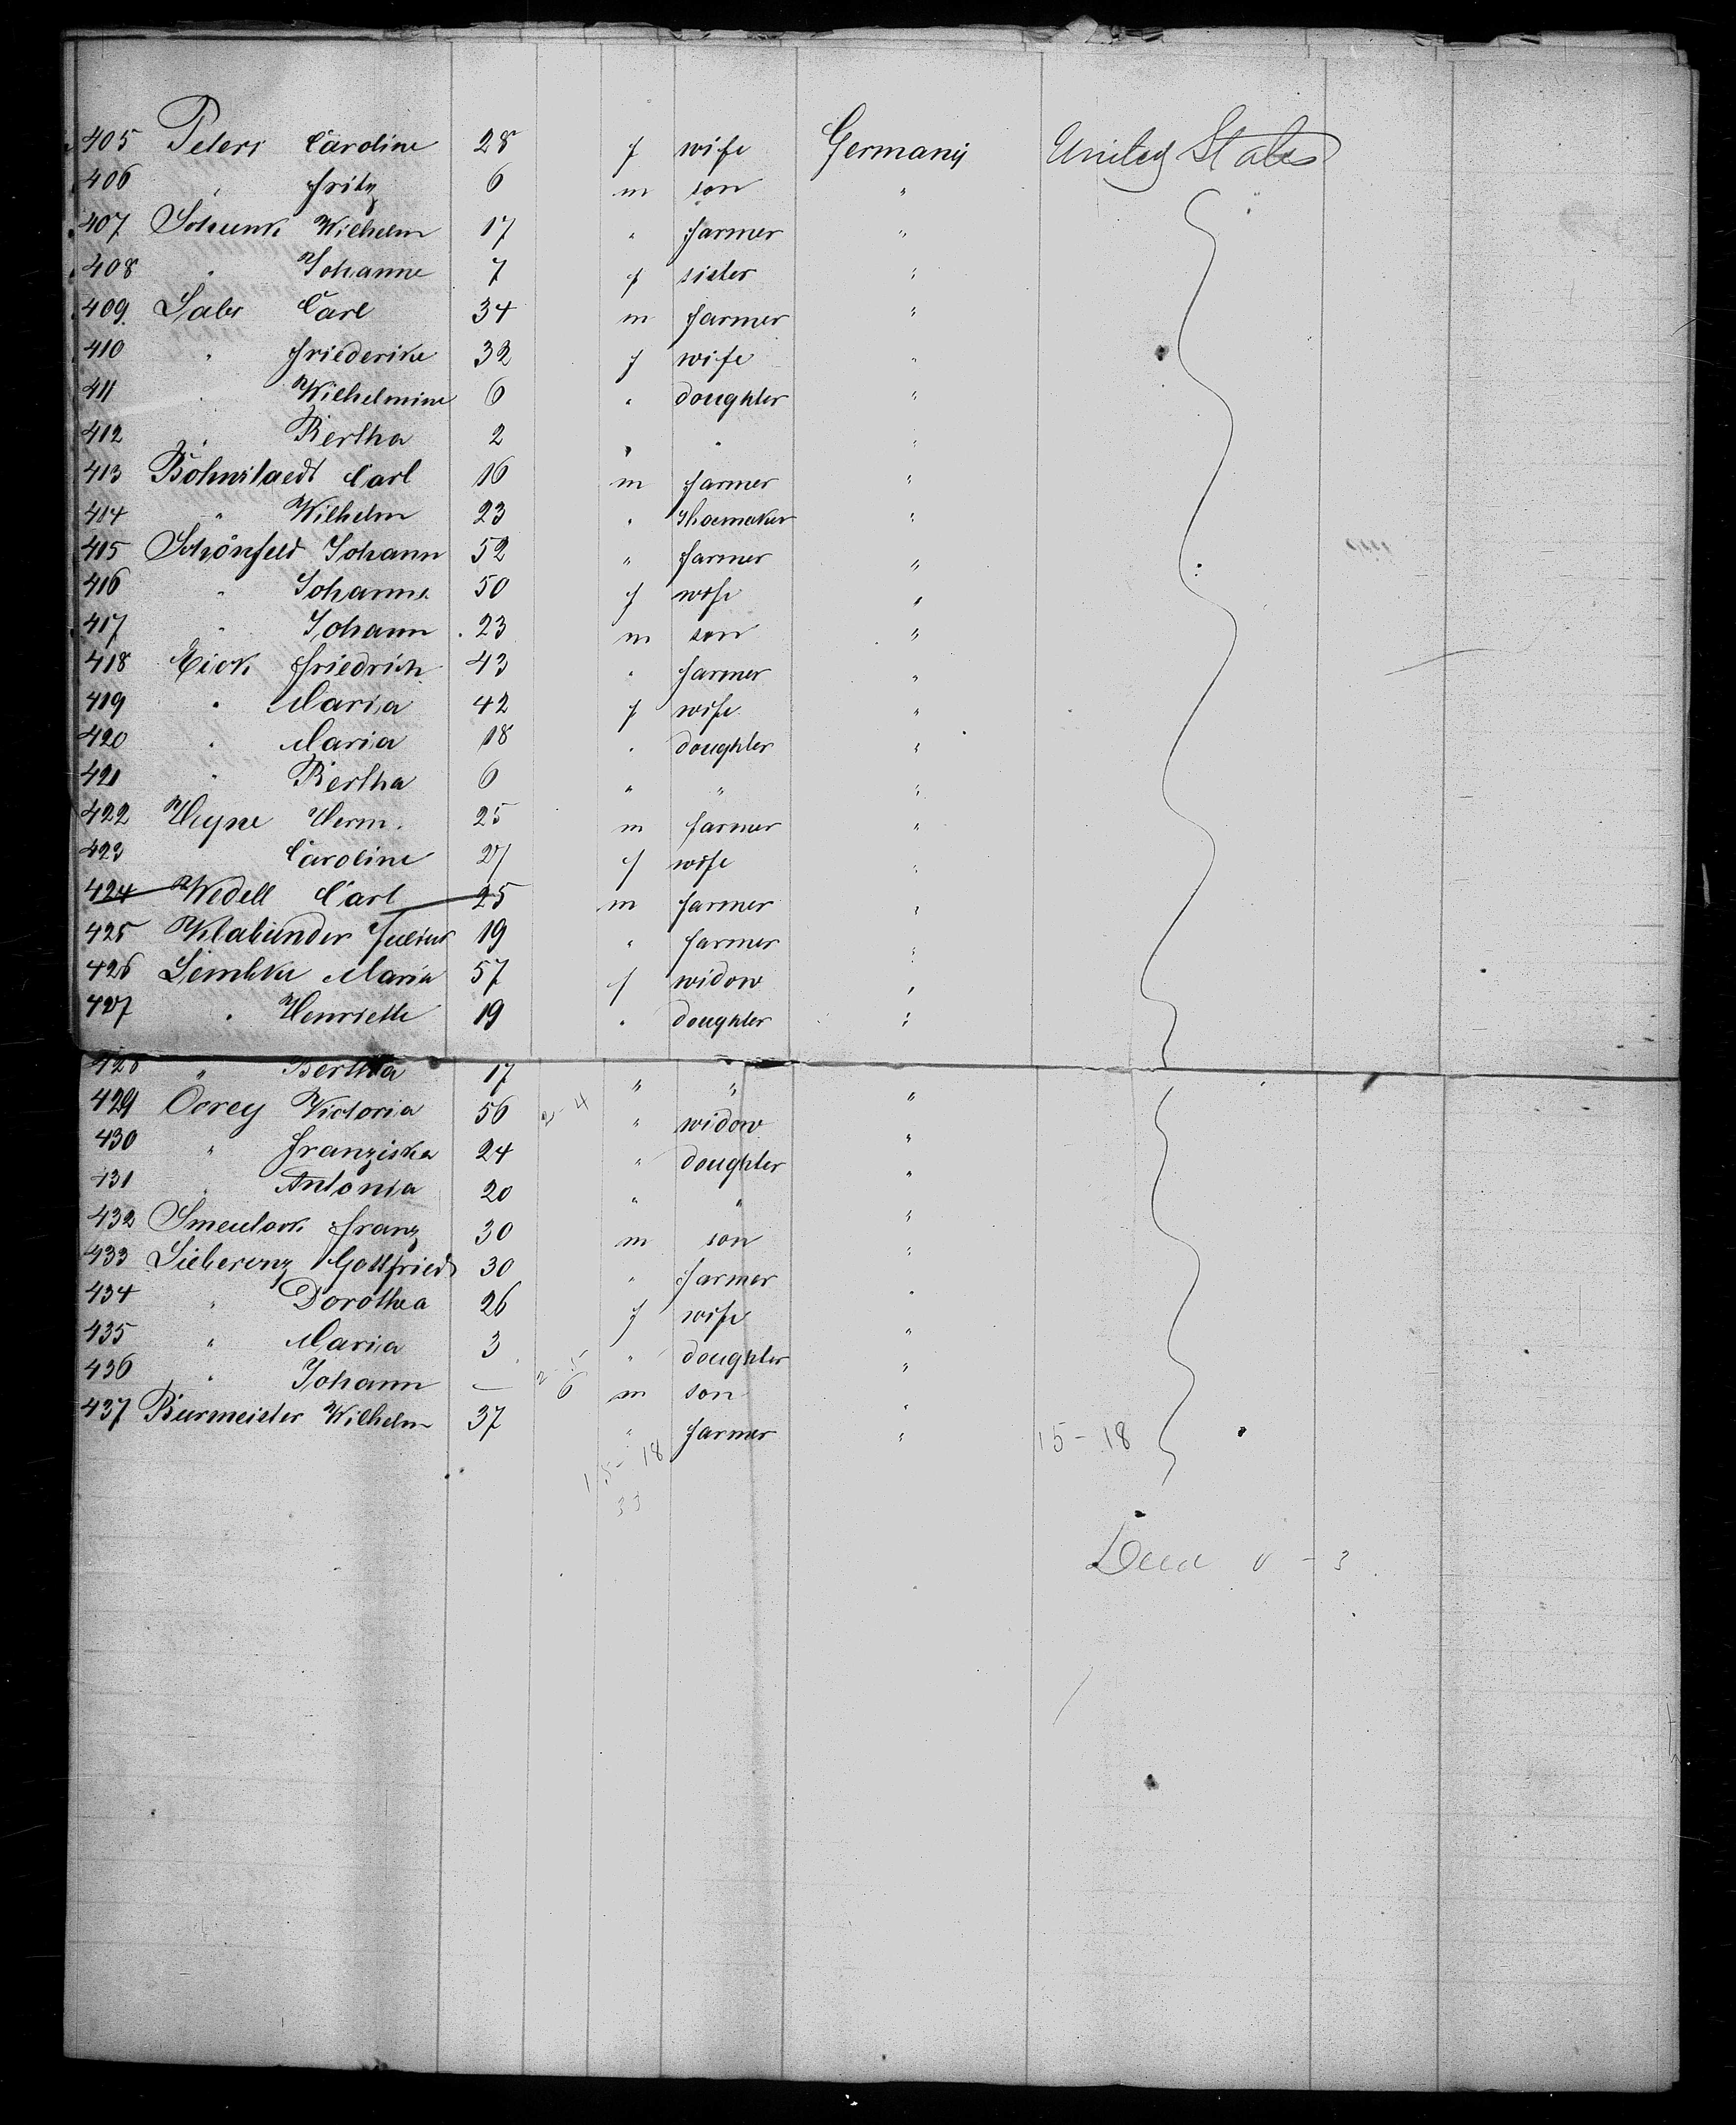 405 Peters Caroline 28 f wife Germany United States
406 " Fritz 6 m son "
407 Schunk Wilhelm 17 " farmer "
408 " Johanne 7 f sister "
409 Labs Carl 34 m farmer "
410 " Friederike 32 f wife "
411 " Wilhelmine 6 " doughter "
412 " Bertha 2 " " "
413 Böhnstaedt Carl 16 m farmer "
414 " Wilhelm 23 " shoemaker "
415 Schönfeld Johann 52 " farmer "
416 " Johanne 50 f wife "
417 " Johann 23 m son "
418 Eick Friedrich 43 " farmer "
419 " Maria 42 f wife "
420 " Maria 18 " doughter "
421 " Bertha 6 " " "
422 Heyse Herm. 25 m farmer "
423 Caroline 27 f wife "
424 Wedell Carl 25 m farmer "
425 Klabunder Julius 19 " farmer "
426 Lembke Maria 57 f widow "
427 " Henriette 19 " doughter "
428 " Bertha 17 " " "
429 Victoria 56 2-4 " widow "
430 " Franziska 24 " doughter "
431 " Antonia 20 " " "
432 Franz 30 m son "
433 Lieberenz Gottfried 30 " farmer "
434 " Dorothea 26 f wife "
435 " Maria 3 " doughter "
436 " Johann — 6 m son "
437 Burmeister Wilhelm 37 " farmer " 15-18
15-18
33
0-3